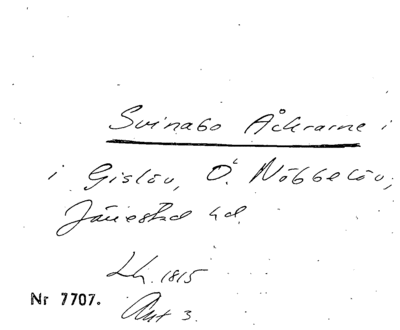 Svinabo Åckrarne i
i Gislöv, Ö. Nöbbelöv,
Järrestad hd.
Lh. 1815
Akt 3.
Nr 7707.